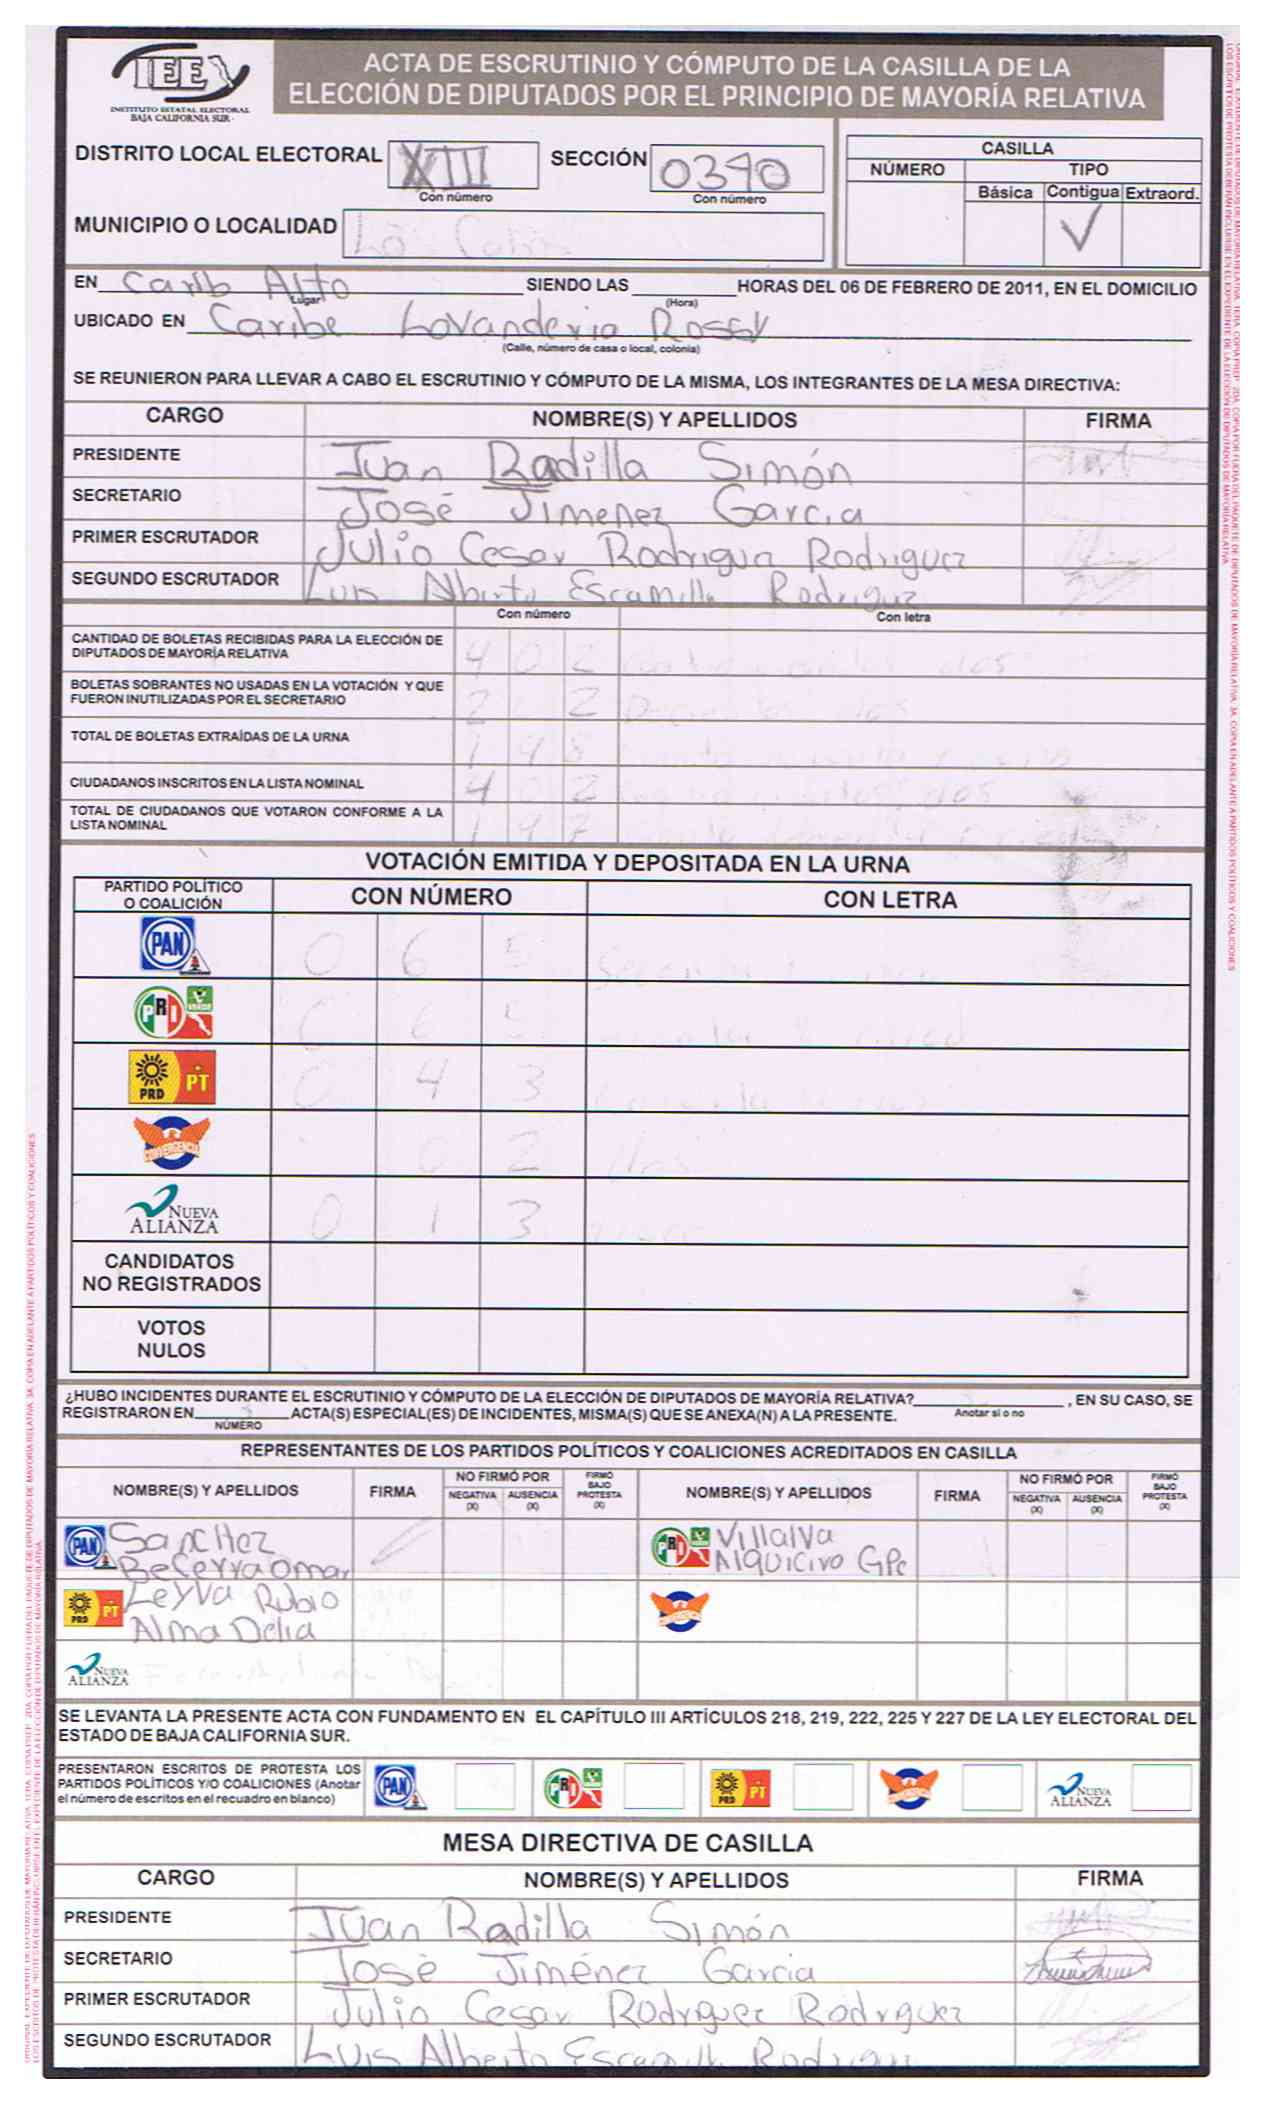 IEE
INSTITUTO ESTATAL ELECTORAL
BAJA CALIFORNIA SUR
ACTA DE ESCRUTINIO Y CÓMPUTO DE LA CASILLA DE LA
ELECCIÓN DE DIPUTADOS POR EL PRINCIPIO DE MAYORÍA RELATIVA
DISTRITO LOCAL ELECTORAL XIII SECCIÓN 0390
Con número Con número
MUNICIPIO O LOCALIDAD Los Cabos
CASILLA
NÚMERO TIPO
Básica Contigua Extraord.
EN Caribe Alto SIENDO LAS HORAS DEL 06 DE FEBRERO DE 2011, EN EL DOMICILIO
Lugar (Hora)
UBICADO EN Caribe Lavanderia Rossy
(Calle, número de casa o local, colonia)
SE REUNIERON PARA LLEVAR A CABO EL ESCRUTINIO Y CÓMPUTO DE LA MISMA, LOS INTEGRANTES DE LA MESA DIRECTIVA:
CARGO NOMBRE(S) Y APELLIDOS FIRMA
PRESIDENTE Juan Radilla Simón
SECRETARIO José Jimenez Garcia
PRIMER ESCRUTADOR Julio Cesar Rodriguez Rodriguez
SEGUNDO ESCRUTADOR Luis Alberto Escamilla Rodriguez
Con número Con letra
CANTIDAD DE BOLETAS RECIBIDAS PARA LA ELECCIÓN DE
DIPUTADOS DE MAYORÍA RELATIVA 4 0 2 dos
BOLETAS SOBRANTES NO USADAS EN LA VOTACIÓN Y QUE
FUERON INUTILIZADAS POR EL SECRETARIO 2 2 dos
TOTAL DE BOLETAS EXTRAÍDAS DE LA URNA 1 9 8
CIUDADANOS INSCRITOS EN LA LISTA NOMINAL 4 2 dos
TOTAL DE CIUDADANOS QUE VOTARON CONFORME A LA
LISTA NOMINAL 1
VOTACIÓN EMITIDA Y DEPOSITADA EN LA URNA
PARTIDO POLÍTICO
O COALICIÓN CON NÚMERO CON LETRA
PAN 0 6 5
PRI VERDE 6 5
PRD PT 0 4 3
CONVERGENCIA 0 2 dos
NUEVA
ALIANZA 0 1 3
CANDIDATOS
NO REGISTRADOS
VOTOS
NULOS
¿HUBO INCIDENTES DURANTE EL ESCRUTINIO Y CÓMPUTO DE LA ELECCIÓN DE DIPUTADOS DE MAYORÍA RELATIVA? , EN SU CASO, SE
REGISTRARON EN ACTA(S) ESPECIAL(ES) DE INCIDENTES, MISMA(S) QUE SE ANEXA(N) A LA PRESENTE. Anotar sí o no
NÚMERO
REPRESENTANTES DE LOS PARTIDOS POLÍTICOS Y COALICIONES ACREDITADOS EN CASILLA
NOMBRE(S) Y APELLIDOS FIRMA NO FIRMÓ POR NEGATIVA (X) AUSENCIA (X) FIRMÓ BAJO PROTESTA (X) NOMBRE(S) Y APELLIDOS FIRMA NO FIRMÓ POR NEGATIVA (X) AUSENCIA (X) FIRMÓ BAJO PROTESTA (X)
PAN Sanchez
Becerra Omar
PRI Villalva
Alquicivo GPe
PRD PT Leyva Rubio
Alma Delia
CONVERGENCIA
NUEVA
ALIANZA
SE LEVANTA LA PRESENTE ACTA CON FUNDAMENTO EN EL CAPÍTULO III ARTÍCULOS 218, 219, 222, 225 Y 227 DE LA LEY ELECTORAL DEL
ESTADO DE BAJA CALIFORNIA SUR.
PRESENTARON ESCRITOS DE PROTESTA LOS
PARTIDOS POLÍTICOS Y/O COALICIONES (Anotar
el número de escritos en el recuadro en blanco)
PAN PRI PRD PT NUEVA ALIANZA
MESA DIRECTIVA DE CASILLA
CARGO NOMBRE(S) Y APELLIDOS FIRMA
PRESIDENTE Juan Radilla Simón
SECRETARIO José Jiménez Garcia
PRIMER ESCRUTADOR Julio Cesar Rodriguez Rodriguez
SEGUNDO ESCRUTADOR Luis Alberto Escamilla Rodriguez